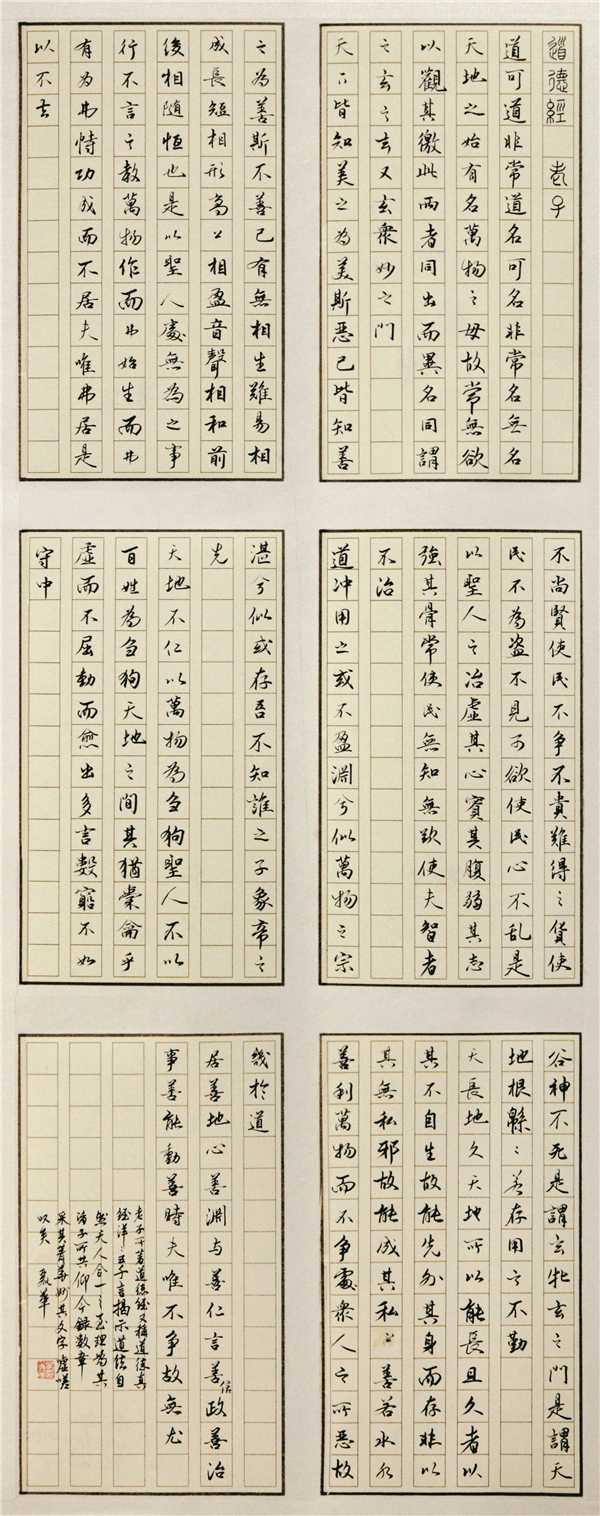 道德經 老子
道可道非常道名可名非常名無名
天地之始有名萬物之母故常無欲
以觀其徼此兩者同出而異名同謂
之玄之玄又玄衆妙之門
天下皆知美之為美斯惡已皆知善
之為善斯不善已有無相生難易相
成長短相形高下相盈音聲相和前
後相隨恒也是以聖人處無為之事
行不言之教萬物作而弗始生而弗
有為弗恃功成而不居夫唯弗居是
以不去
不尚賢使民不争不貴難得之貨使
民不為盗不見可欲使民心不乱是
以聖人之治虛其心實其腹弱其志
強其骨常使民無知無欲使夫智者
不治
道冲用之或不盈淵兮似萬物之宗
湛兮似或存吾不知誰之子象帝之
先
天地不仁以萬物為芻狗聖人不以
百姓為芻狗天地之間其猶橐龠乎
虛而不屈動而愈出多言數窮不如
守中
谷神不死是謂玄牝玄之門是謂天
地根緜〻若存用之不勤
天長地久天地所以能長且久者以
其不自生故能先外其身而存非以
其無私邪故能成其私 善若水水
善利萬物而不争處衆人之所惡故
幾於道
居善地心善淵与善仁言善信政善治
事善能動善時夫唯不争故無尤
老子所著道德經又稱道德真
經洋〻五千言揭示道法自
然天人合一之至理為其
諸子所共仰今錄數章
采其菁華妙其文字嘘嗟
叹矣